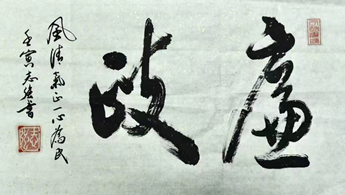 廉政
風清氣正一心為民
壬寅志書